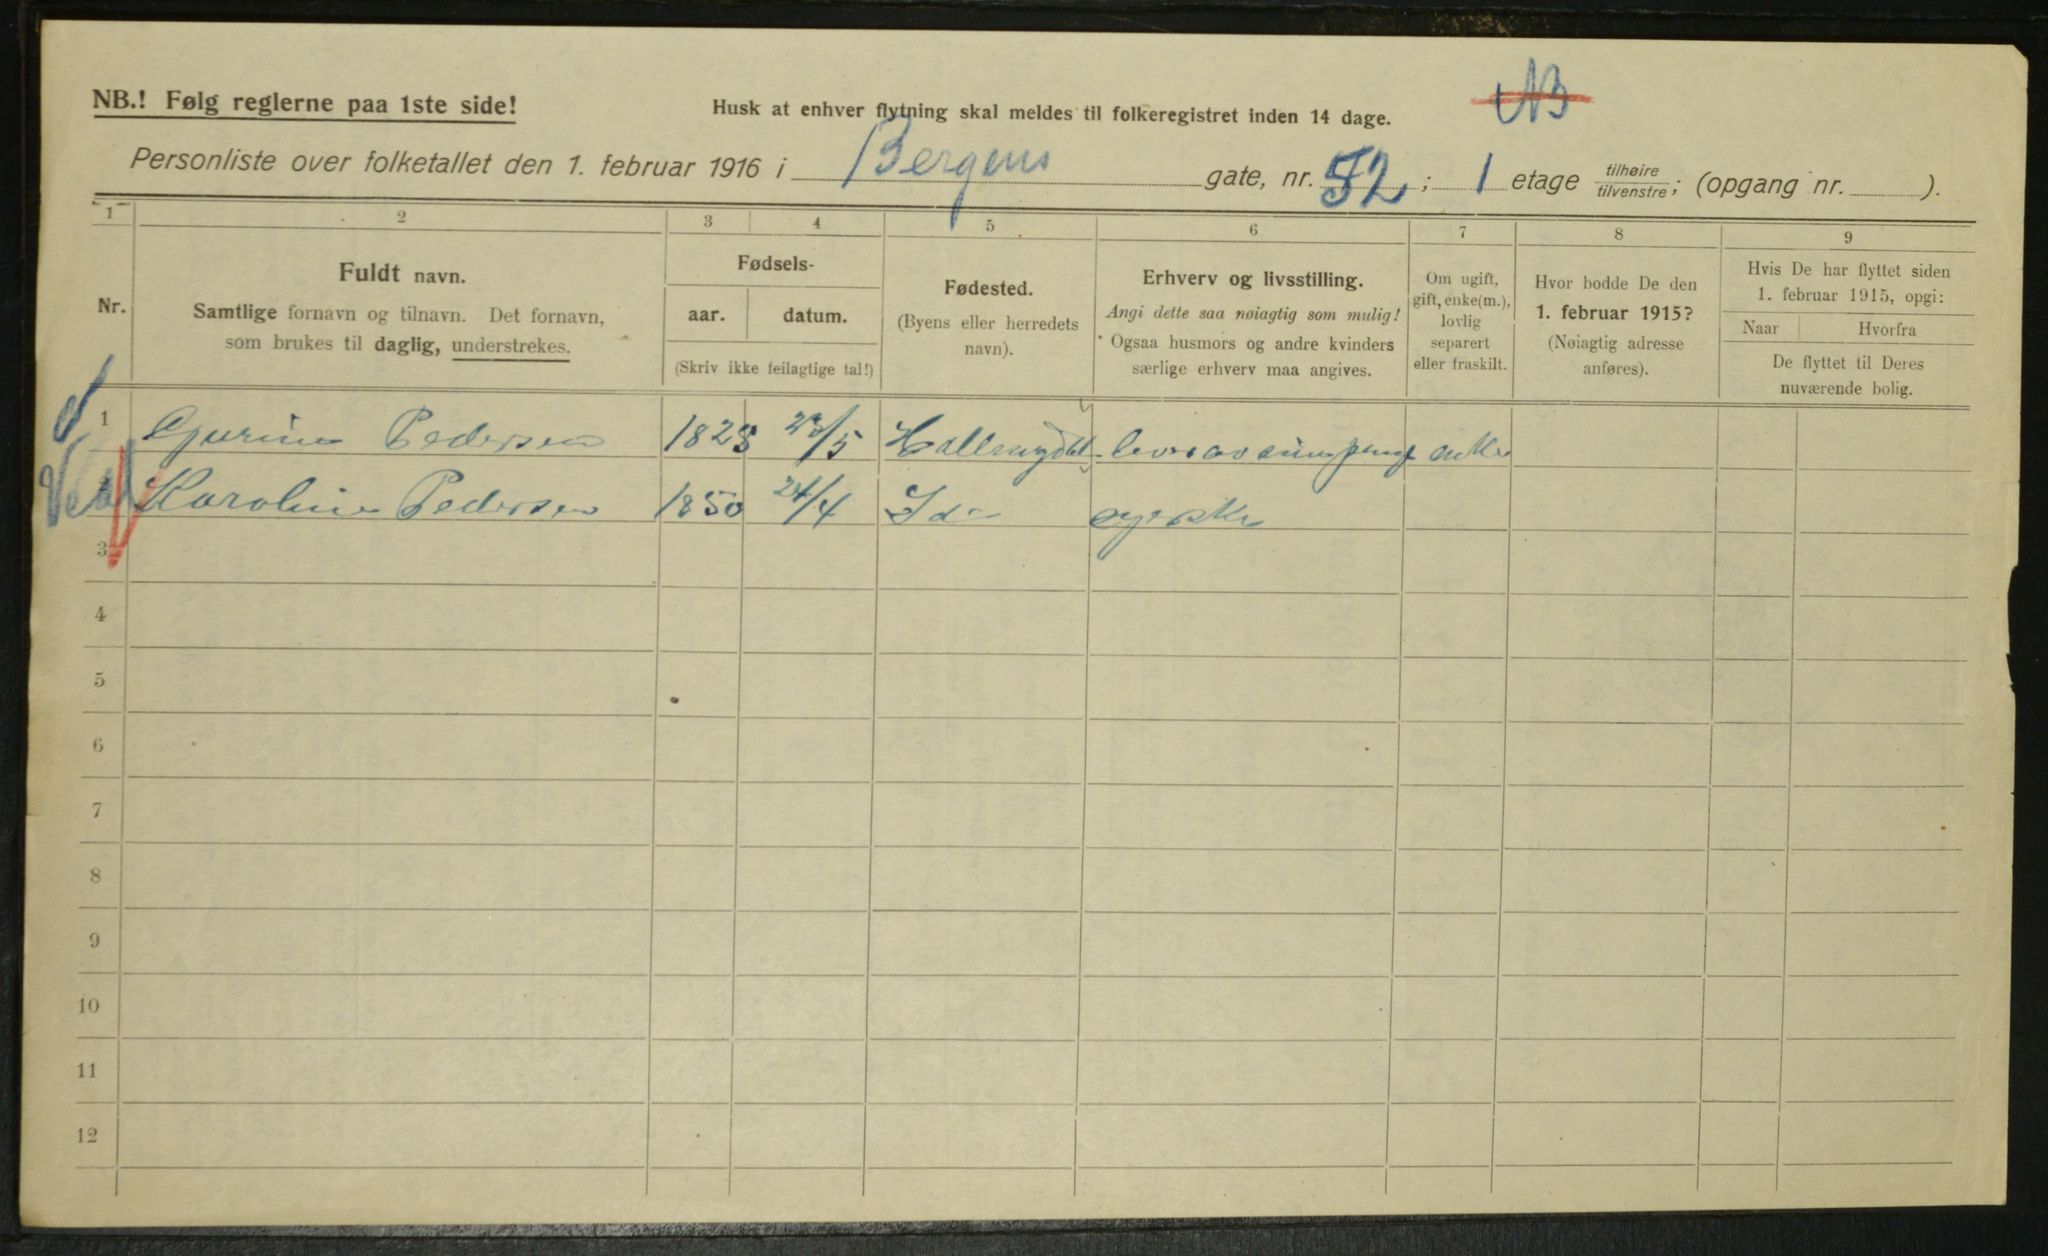 NB
NB.! Følg reglerne paa 1ste side!
Husk at enhver flytning skal meldes til folkeregistret inden 14 dage.
Personliste over folketallet den 1. februar 1916 i Bergens gate, nr. 52; 1 etage tilhøire tilvenstre; (opgang nr. ).
1 2 3 4 5 6 7 8 9
Nr.
Fuldt navn.
Samtlige fornavn og tilnavn. Det fornavn,
som brukes til daglig, understrekes.
Fødsels-
aar. datum.
(Skriv ikke feilagtige tal!)
Fødested.
(Byens eller herredets
navn).
Erhverv og livsstilling.
Angi dette saa nøiagtig som mulig!
Ogsaa husmors og andre kvinders
særlige erhverv maa angives.
Om ugift,
gift, enke(m.),
lovlig
separert
eller fraskilt.
Hvor bodde De den
1. februar 1915?
(Nøiagtig adresse
anføres).
Hvis De har flyttet siden
1. februar 1915, opgi:
Naar Hvorfra
De flyttet til Deres
nuværende bolig.
1 Gurine Pedersen 1828 23/5 lever av sine penge enke
Karoline Pedersen 1850 24/4 syerske
3
4
5
6
7
8
9
10
11
12